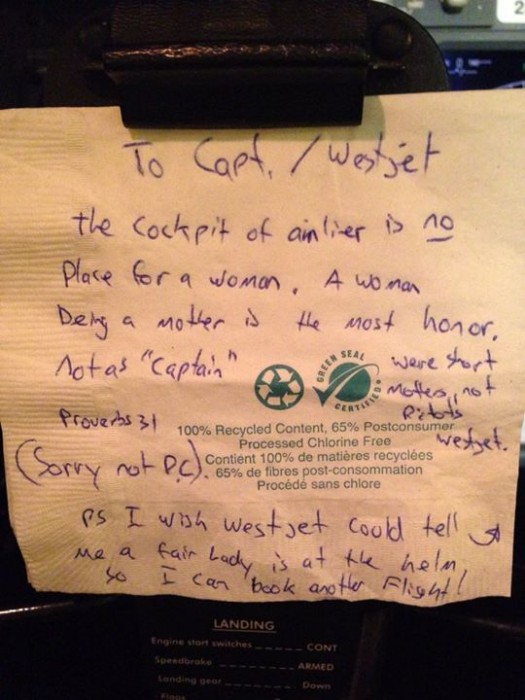 To Capt. / Westjet
the cockpit of airlier is no
Place for a woman. A woman
Being a mother is the most honor.
Not as "captain"
were short
mothers, not
Pilots
westjet.
Proverbs 31
(Sorry not P.C.)
GREEN SEAL
CERTIFIED
100% Recycled Content, 65% Postconsumer
Processed Chlorine Free
Contient 100% de matières recyclées
65% de fibres post-consommation
Procédé sans chlore
PS I wish westjet could tell
me a fair Lady is at the helm,
so I can book another Flight!
LANDING
Engine start switches _ _ _ _ _ CONT
Speedbrake _ _ _ _ _ _ _ _ ARMED
Landing gear _ _ _ _ _ _ _ _ Down
Flaps
2